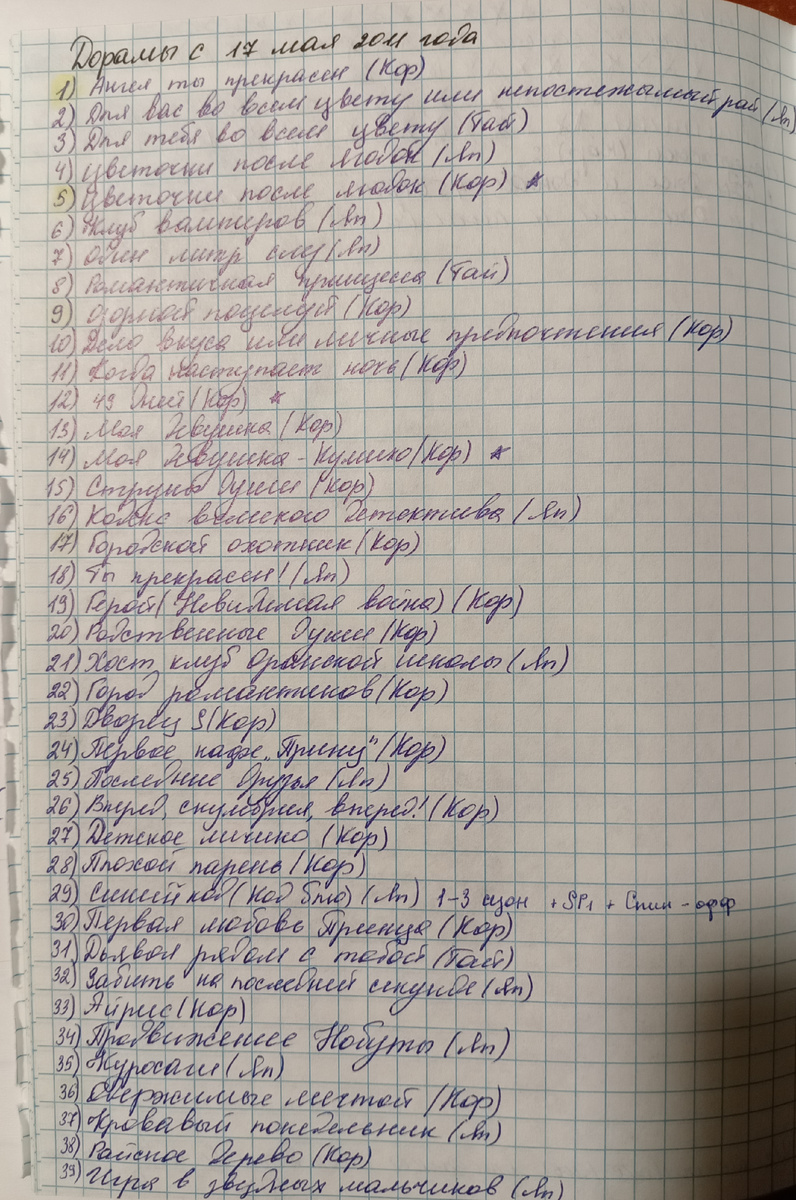 Дорамы с 17 мая 2011 года
1) Ангел ты прекрасен (Кор)
2) Для вас во всем цвету или непостежымый рай (Яп)
3) Для тебя во всем цвету (Тай)
4) Цветочки после ягодок (Яп)
5) Цветочки после ягодок (Кор) *
6) Клуб вампиров (Яп)
7) Один литр слёз (Яп)
8) Романтичная принцесса (Тай)
9) Озорной поцелуй (Кор)
10) Дело вкуса или личные предпочтения (Кор)
11) Когда наступает ночь (Кор)
12) 49 дней (Кор) *
13) Моя девушка (Кор)
14) Моя девушка - Кумихо (Кор) *
15) Струны души (Кор)
16) Кодекс великого детектива (Яп)
17) Городской охотник (Кор)
18) Ты прекрасен! (Яп)
19) Герой (Невидимая война) (Кор)
20) Родственные души (Кор)
21) Хост клуб Оранской школы (Яп)
22) Город романтиков (Кор)
23) Дворец S (Кор)
24) Первое кафе „Принц" (Кор)
25) Последние друзья (Яп)
26) Вперед, скумбрия, вперед! (Кор)
27) Детское личико (Кор)
28) Плохой парень (Кор)
29) Синий код (Код блю) (Яп) 1-3 сезон + SP1 + Спин-офф
30) Первая любовь Принца (Кор)
31) Дьявол рядом с тобой (Тай)
32) Забить на последней секунде (Яп)
33) Айрис (Кор)
34) Продвижение Нобуты (Яп)
35) Куросаги (Яп)
36) Одержимые мечтой (Кор)
37) Кровавый понедельник (Яп)
38) Райское дерево (Кор)
39) Игра в звездных мальчиков (Яп)